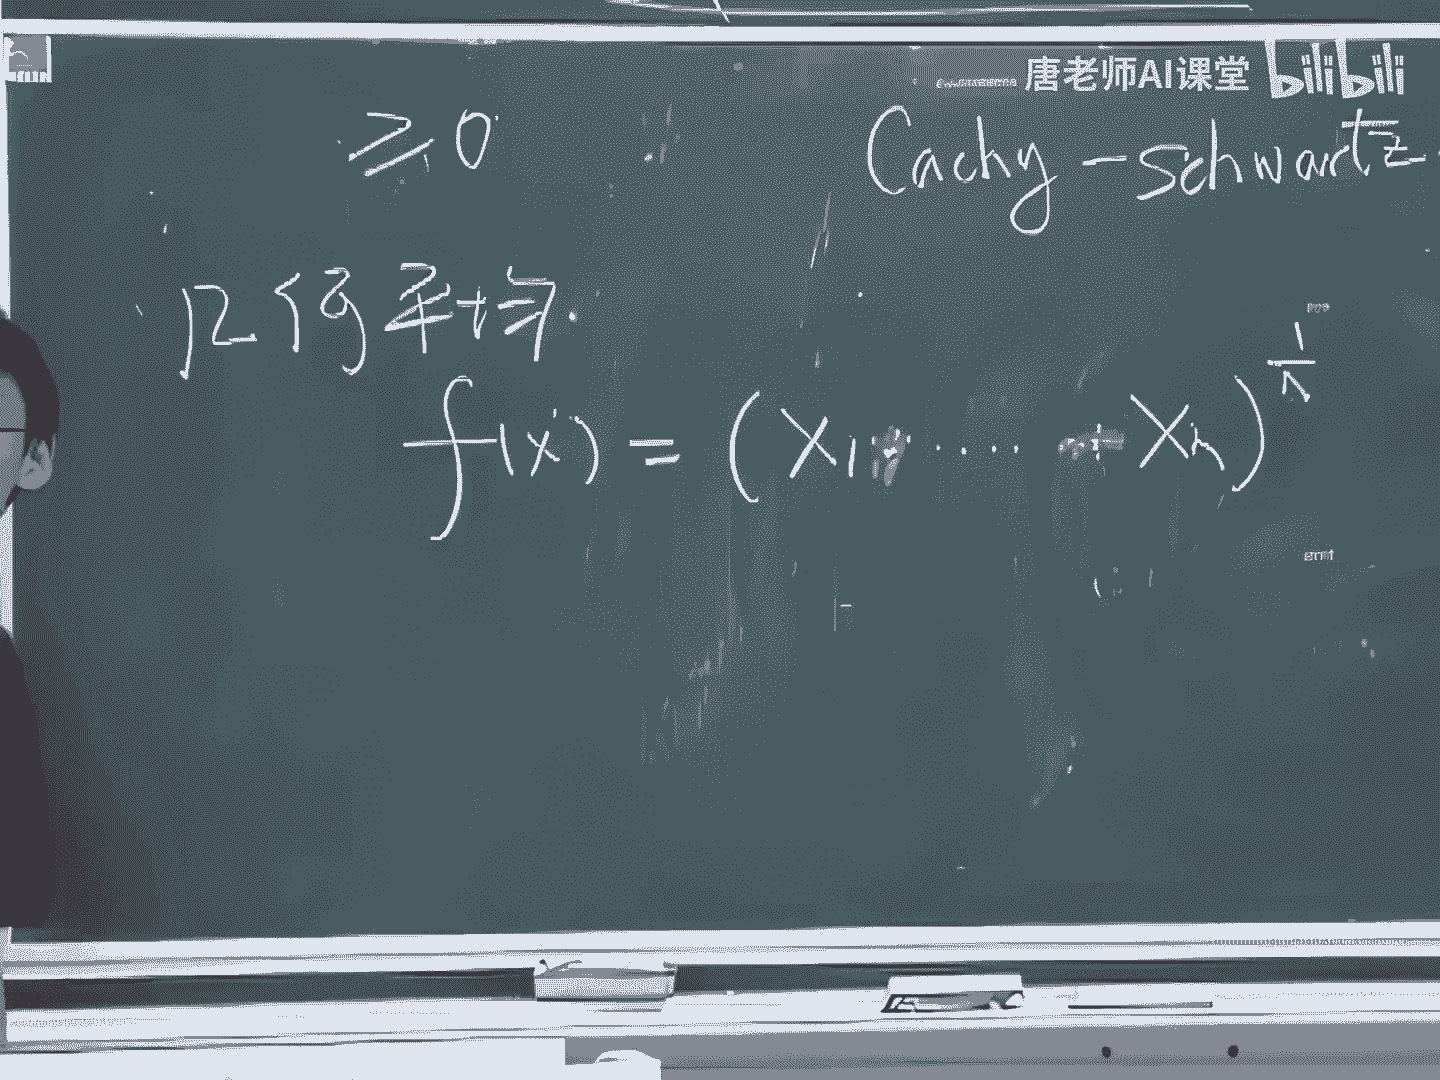 唐老师AI课堂 bilibili
≥0 Cachy-schwartz
几何平均.
f(x) = (x₁ · .... · xₙ)^(1/n)